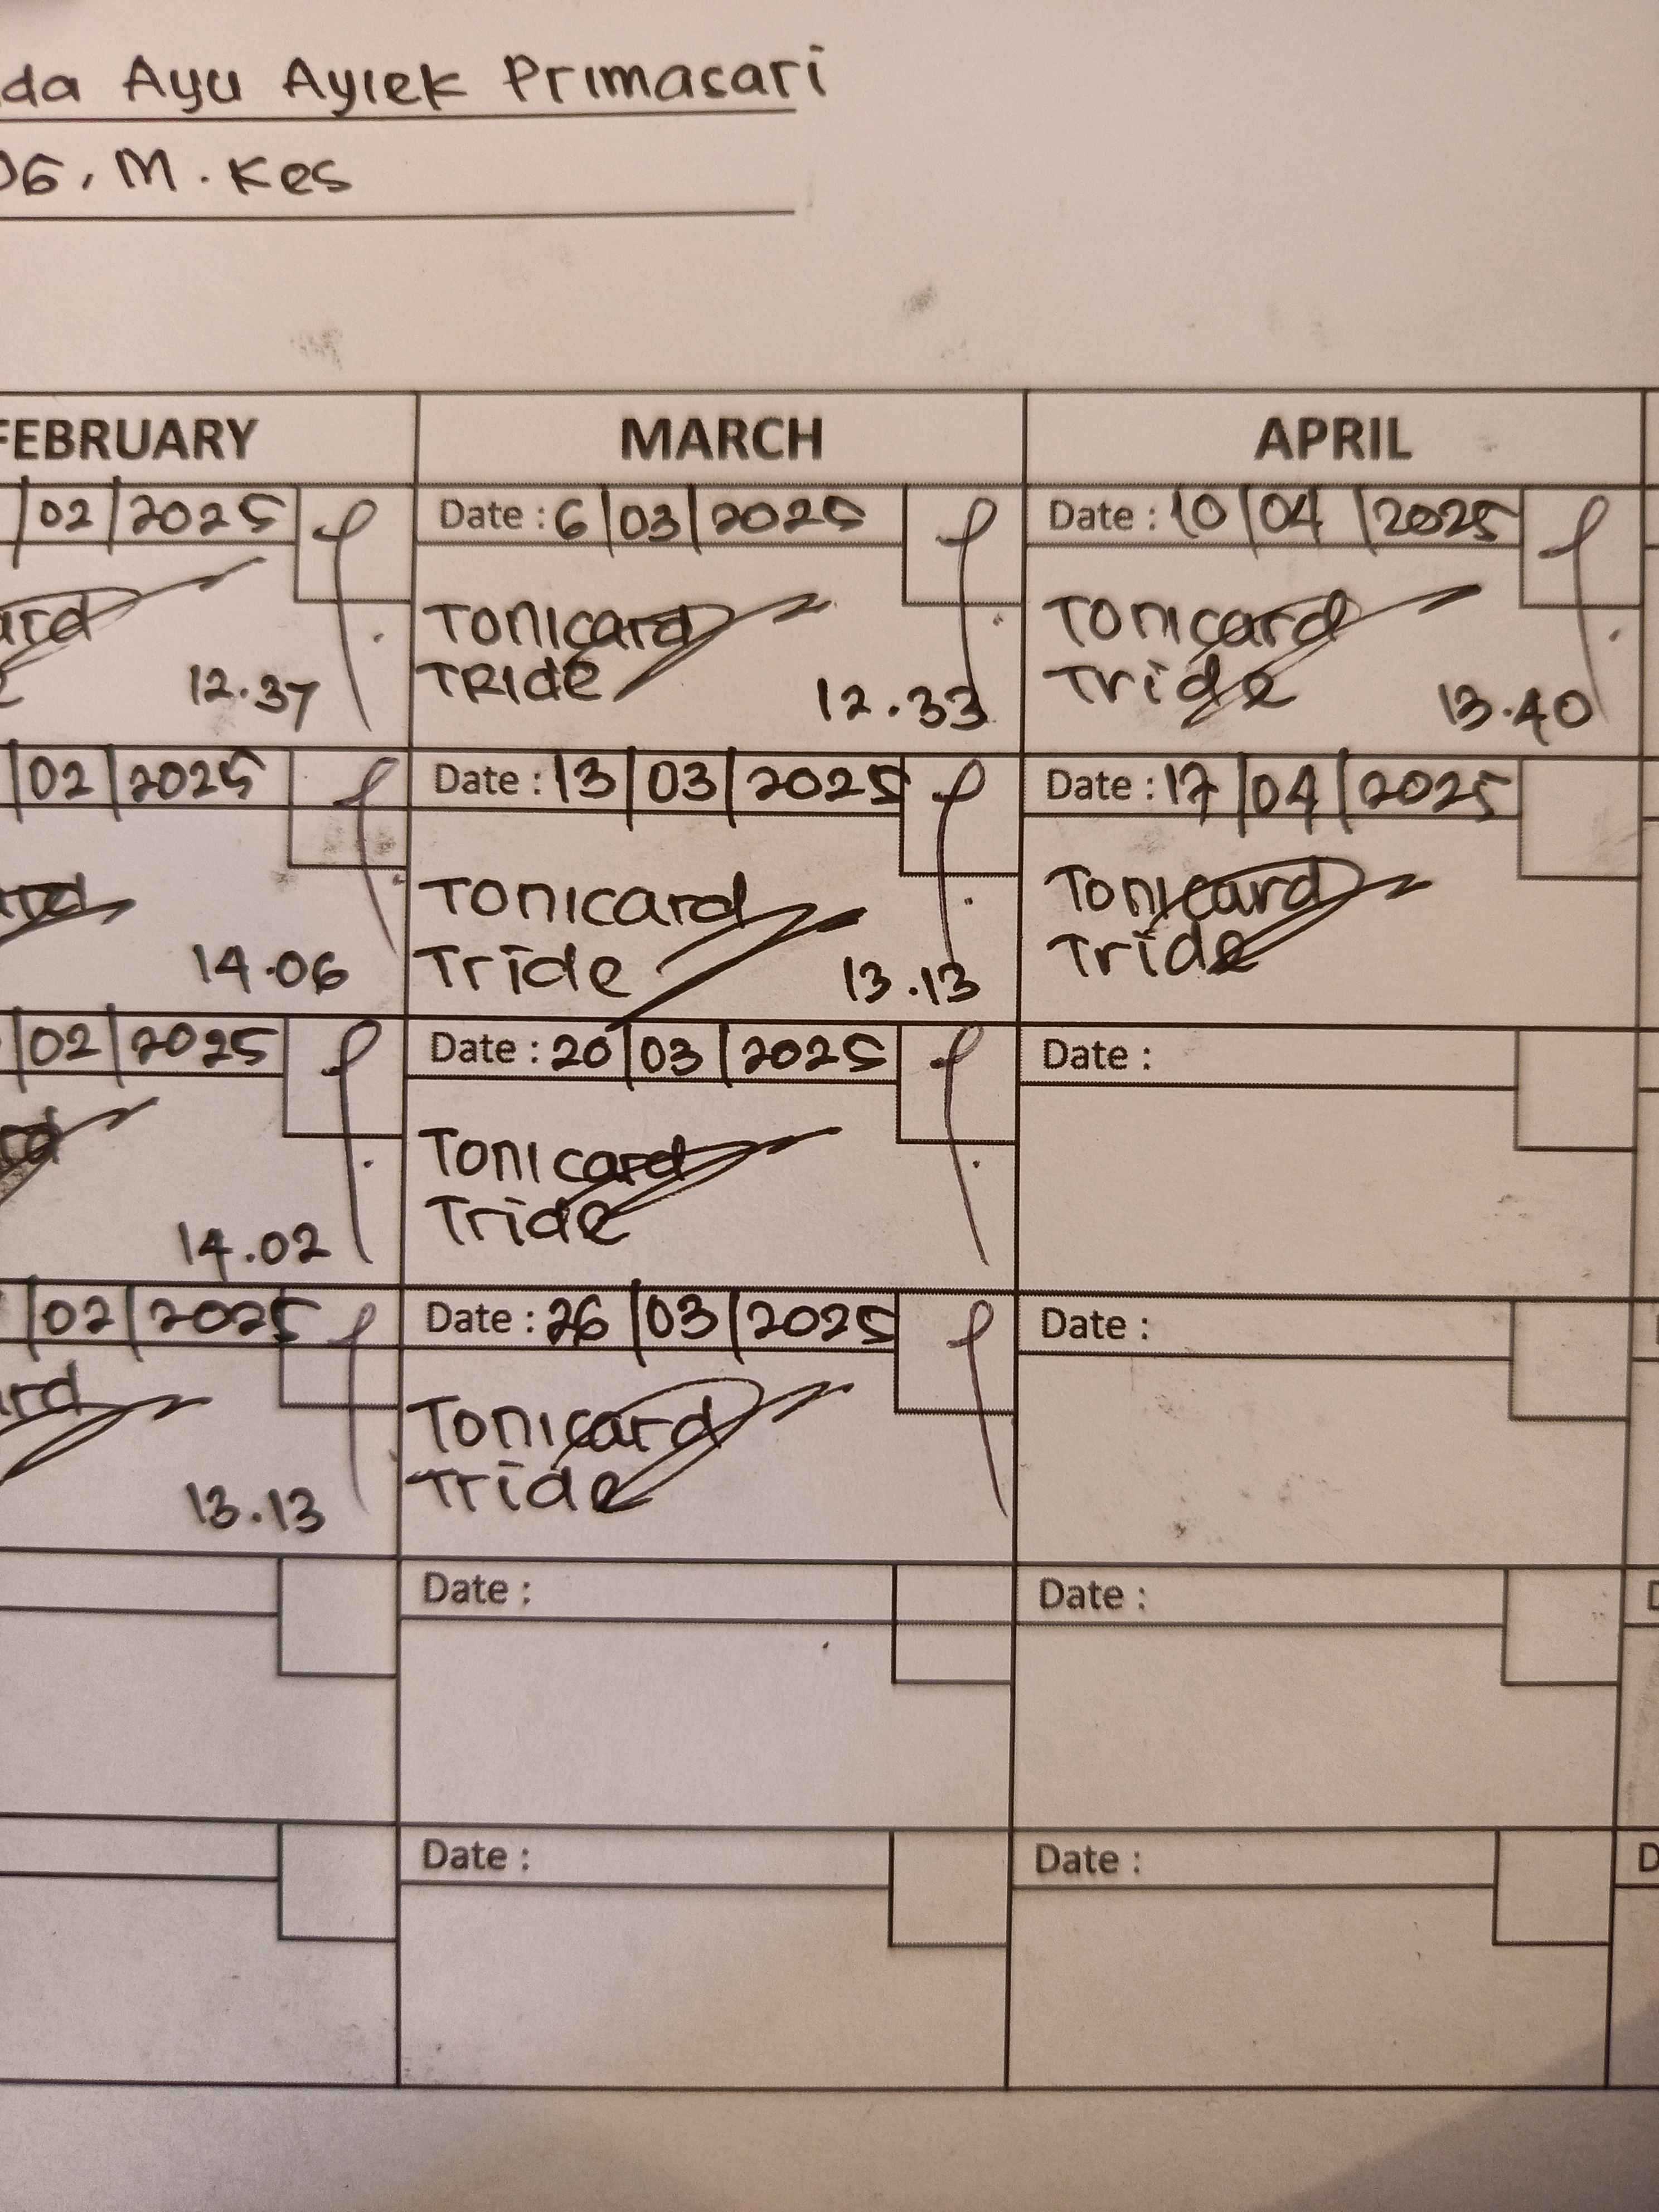 da Ayu Ayıek Primasari
06, M. Kes
FEBRUARY
MARCH
APRIL
/02/2025
12.37
Date : 6/03/2025
Tonicard
TRIDE
12.33
Date : 10/04/2025
Tonicard
Tride
13.40
/02/2025
14.06
Date : 13/03/2025
Tonicard
Tride
13.13
Date : 17/04/2025
Tonicard
Tride
/02/2025
14.02
Date : 20/03/2025
Tonicard
Tride
Date :
/02/2025
13.13
Date : 26/03/2025
Tonicard
Tride
Date :
Date :
Date :
Date :
Date :